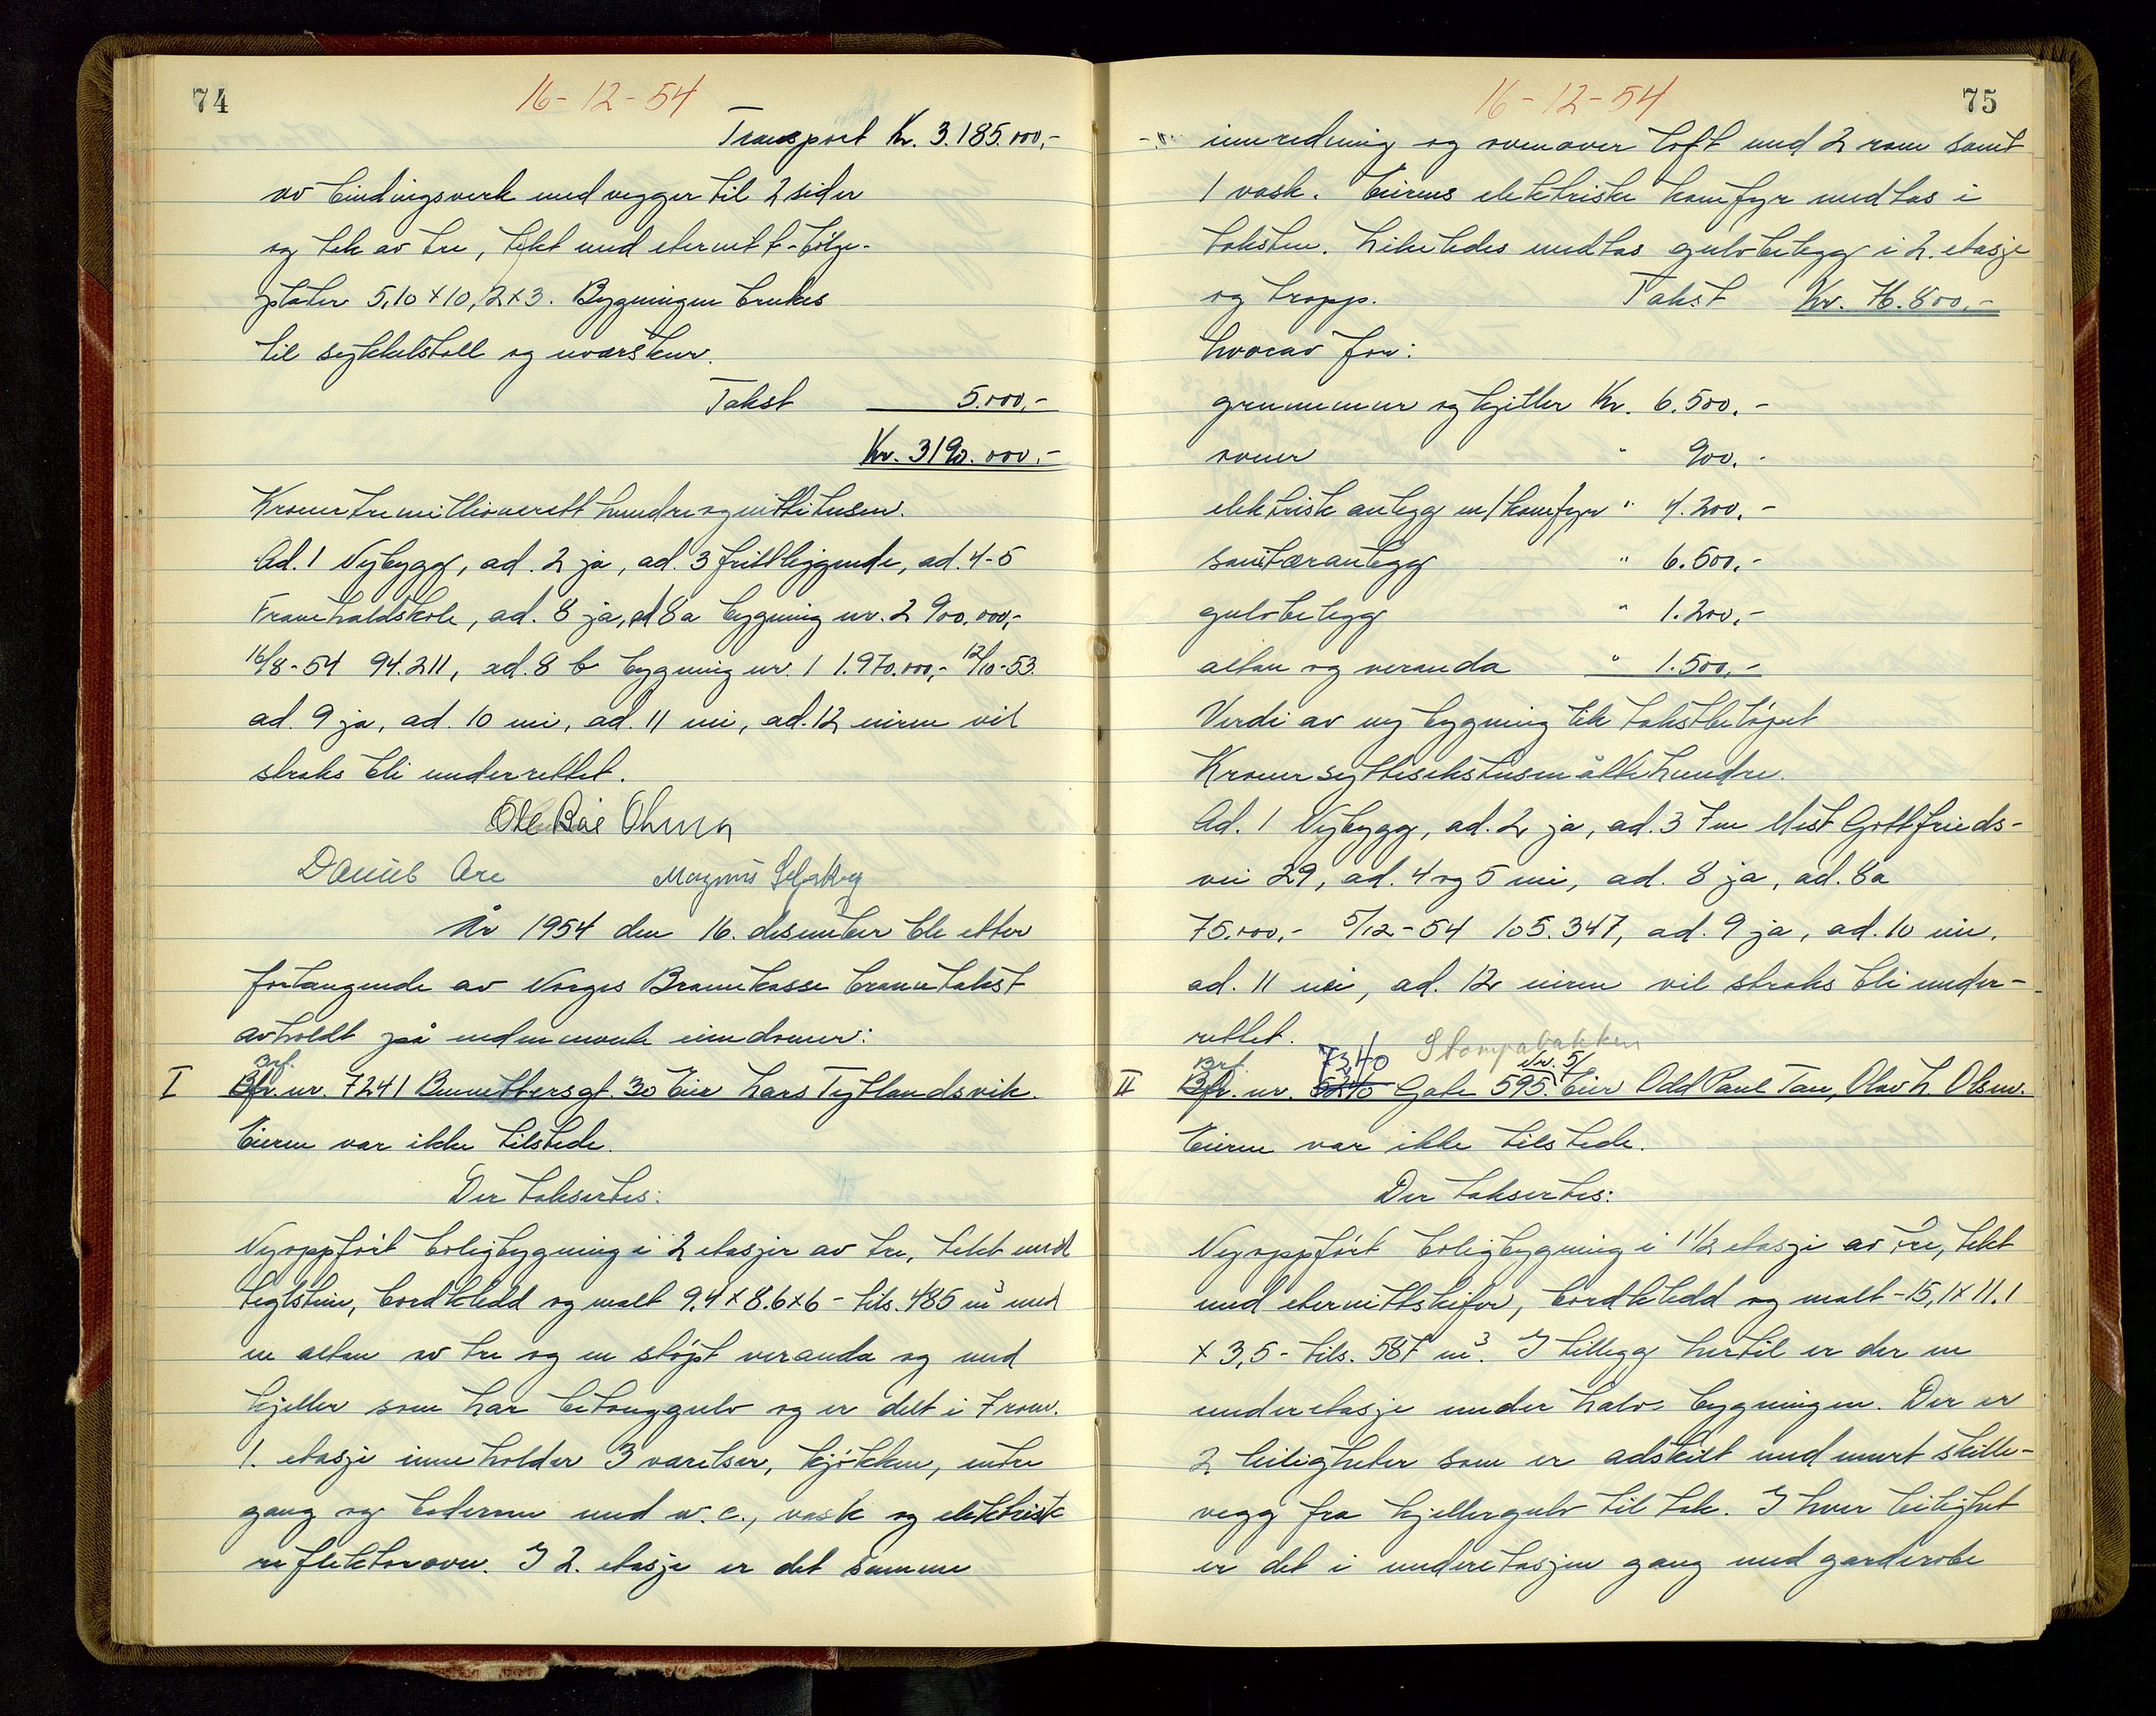 74
16-12-54
Transport Kr. 3.185.000,-
av bindingsverk med vegger til 2 sider
og tak av tre, tekt med eternitt-bölge-
plater 5,10 x 10,2 x 3. Bygningen brukes
til sykkelstall og uværskur.
Takst 5.000,-
Kr. 3190.000,-
Kroner tremillionerett hundreognittitusen.
Ad. 1 Nybygg, ad. 2 ja, ad. 3 frittliggende, ad. 4-5
Framhaldskole, ad. 8 ja, ad 8a bygning nr. 2 900.000,-
16/8-54 94.211, ad. 8 b bygning nr. 1 1.970.000,- 12/10-53.
ad. 9 ja, ad. 10 nei, ad. 11 nei, ad. 12 eieren vil
straks bli underrettet.
Ole Röe
Magnus
År 1954 den 16. desember ble etter
forlangende av Norges Brannkasse branntakst
avholdt på nedennevnte eiendomer:
Brf.
I Bfr. nr. 7241 30 Eier Lars Tytlandsvik.
Eieren var ikke tilstede.
Der taksertes:
Nyoppfört boligbygning i 2 etasjer av tre, tekt med
teglstein, bordkledd og malt 9,4 x 8.6 x 6 - tils. 485 m³ med
en altan av tre og en stöpt veranda og med
kjeller som har betonggulv og er delt i 7 rom.
1. etasje inneholder 3 værelser, kjökken, entre
gang og baderom med w.c., vask og elektrisk
reflektorovn. I 2. etasje er det samme
75
16-12-54
innredning og ovenover loft med 2 rom samt
1 vask. Eierens elektriske komfyr medtas i
taksten. Likeledes medtas gulvbelegg i 2. etasje
og trapp. Takst Kr. 76.800,-
hvorav for:
grunnmur og kjeller Kr. 6.500,-
ovner " 900,-
elektrisk anlegg m/komfyr " 4.200,-
sanitæranlegg " 6.500,-
gulvbelegg " 1.200,-
altan og veranda " 1.500,-
Verdi av ny bygning lik takstbelöpet
Kroner syttisekstusenåttehundre.
Ad. 1 Nybygg, ad. 2 ja, ad. 3 7 m Mest Gottfrieds-
vei 29, ad. 4 og 5 nei, ad. 8 ja, ad. 8a
75.000,- 5/12-54 105.347, ad. 9 ja, ad. 10 nei,
ad. 11 nei, ad. 12 eieren vil straks bli under-
rettet.
Brf. 7340 Stampabakken Nr. 5/
II Bfr. nr. 5240 Gate 595. Eier Odd Paul Tau, Olav L. Olsen.
Eieren var ikke tilstede.
Der taksertes:
Nyoppfört boligbygning i 1 1/2 etasje av tre, tekt
med eternittskifer, bordkledd og malt - 15,1 x 11.1
x 3,5 - tils. 587 m³. I tillegg hertil er der en
underetasje under halve bygningen. Der er
2 leiligheter som er adskilt med murt skille-
vegg fra kjellergulv til tak. I hver leilighet
er det i underetasjen gang med garderobe